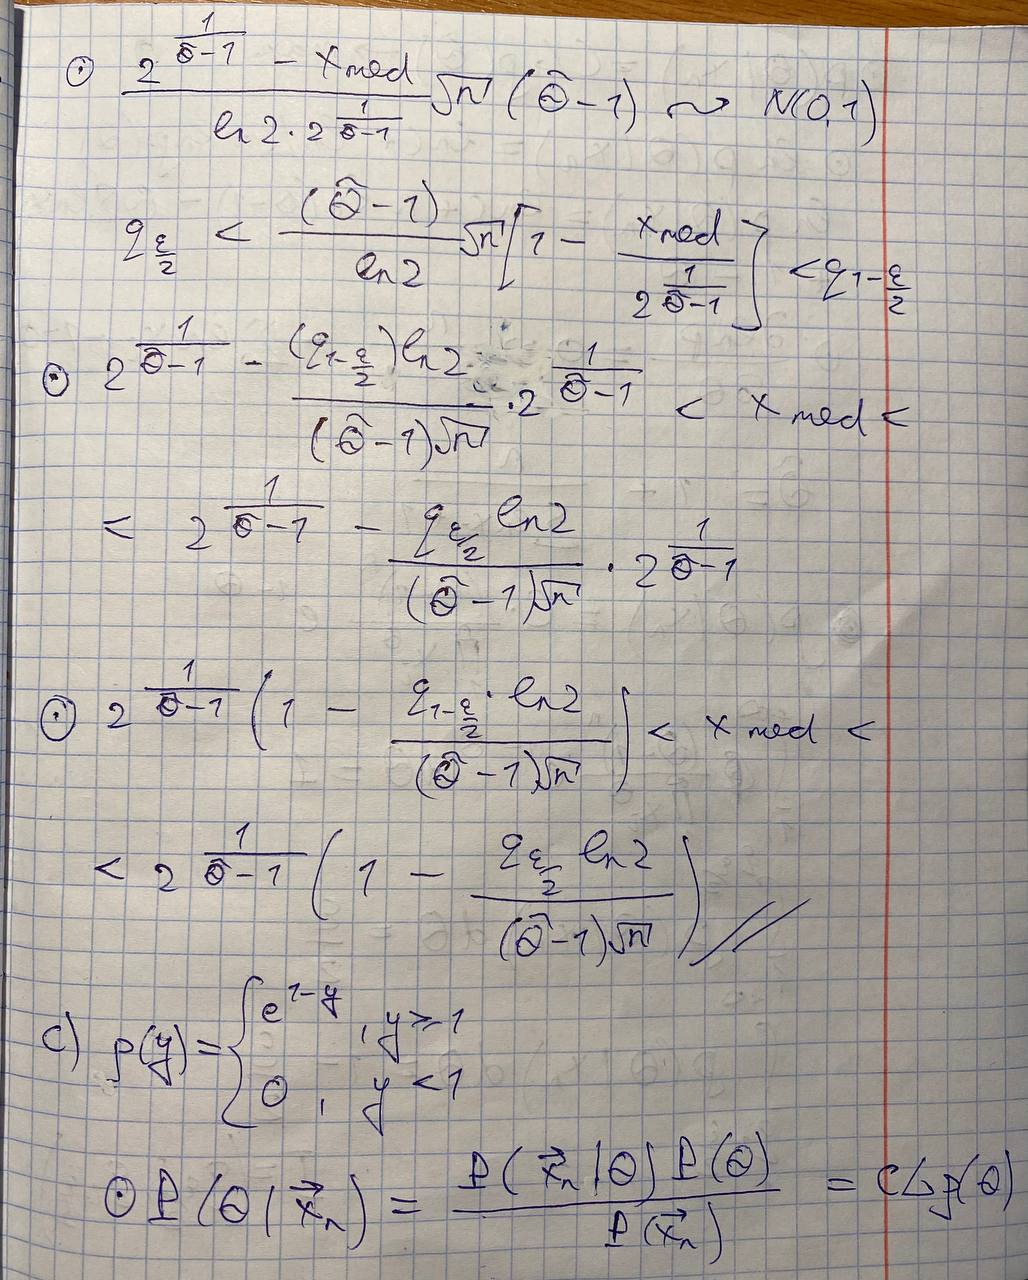 ⊙ \frac{2^{\frac{1}{\tilde{θ}-1}} - x_{med}}{ln 2 · 2^{\frac{1}{\tilde{θ}-1}}} √n (\tilde{θ}-1) ⇝ N(0,1)
q_{\frac{ε}{2}} < \frac{(\tilde{θ}-1)}{ln 2} √n [1 - \frac{x_{med}}{2^{\frac{1}{\tilde{θ}-1}}}] < q_{1-\frac{ε}{2}}
⊙ 2^{\frac{1}{\tilde{θ}-1}} - \frac{(q_{1-\frac{ε}{2}}) ln 2}{(\tilde{θ}-1)√n} · 2^{\frac{1}{\tilde{θ}-1}} < x_{med} <
< 2^{\frac{1}{\tilde{θ}-1}} - \frac{q_{ε/2} ln 2}{(\tilde{θ}-1)√n} · 2^{\frac{1}{\tilde{θ}-1}}
⊙ 2^{\frac{1}{\tilde{θ}-1}} (1 - \frac{q_{1-\frac{ε}{2}} · ln 2}{(\tilde{θ}-1)√n}) < x_{med} <
< 2^{\frac{1}{\tilde{θ}-1}} (1 - \frac{q_{\frac{ε}{2}} ln 2}{(\tilde{θ}-1)√n}) //
c) p(y) = { e^{1-y}, y ≥ 1
0, y < 1
⊙ P(θ|\vec{x}_n) = \frac{P(\vec{x}_n|θ) P(θ)}{P(\vec{x}_n)} = C L p(θ)